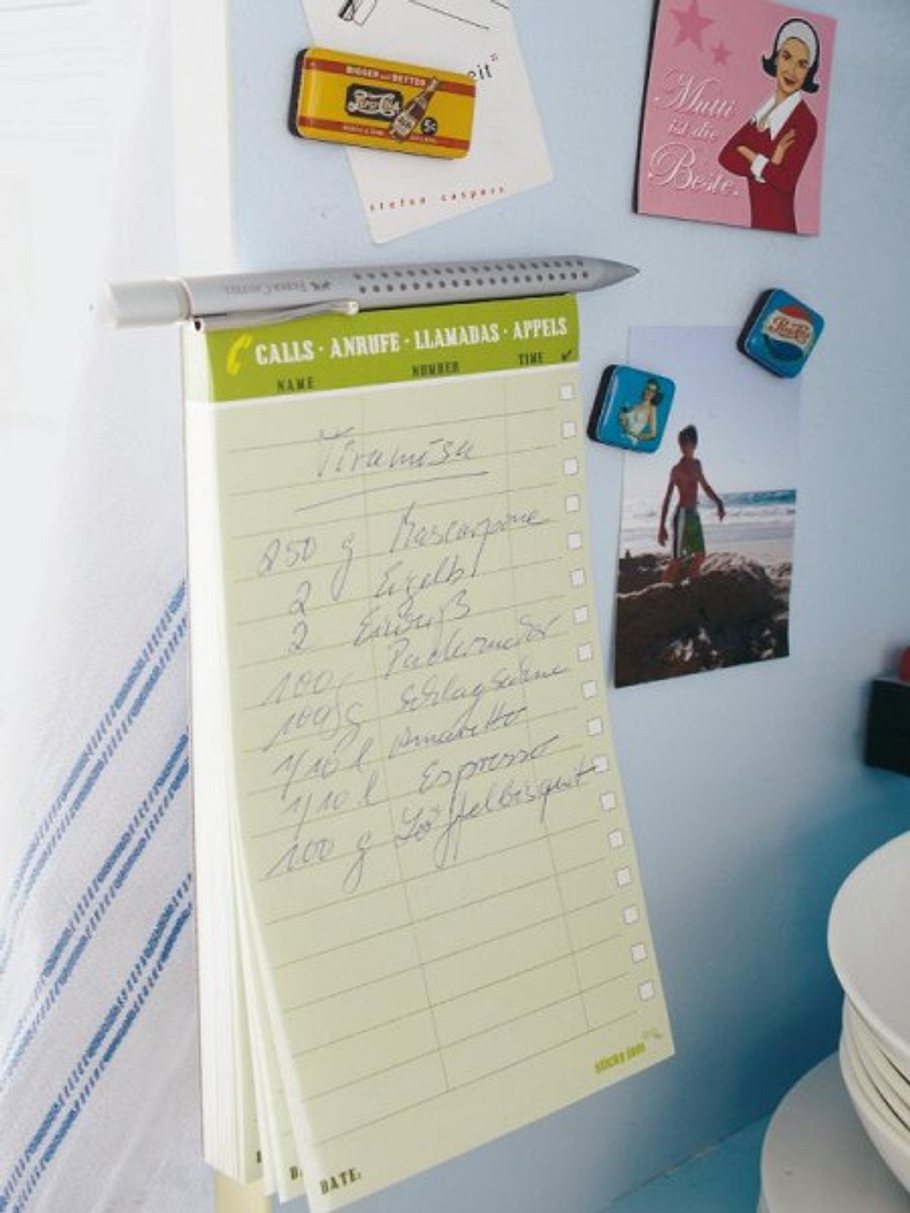 eit"
BIGGER and BETTER
PEPSI-COLA
5¢
stefan caspers
Mutti
ist die
Beste.
FABER-CASTELL
CALLS · ANRUFE · LLAMADAS · APPELS
NAME NUMBER TIME ✓
Tiramisu
250 g Mascarpone
2 Eigelb
2 Eiweiß
100 g Puderzucker
100 g Schlagsahne
1/10 l Amaretto
1/10 l Espresso
100 g Löffelbisquit
sticky lemon
D
DATE: